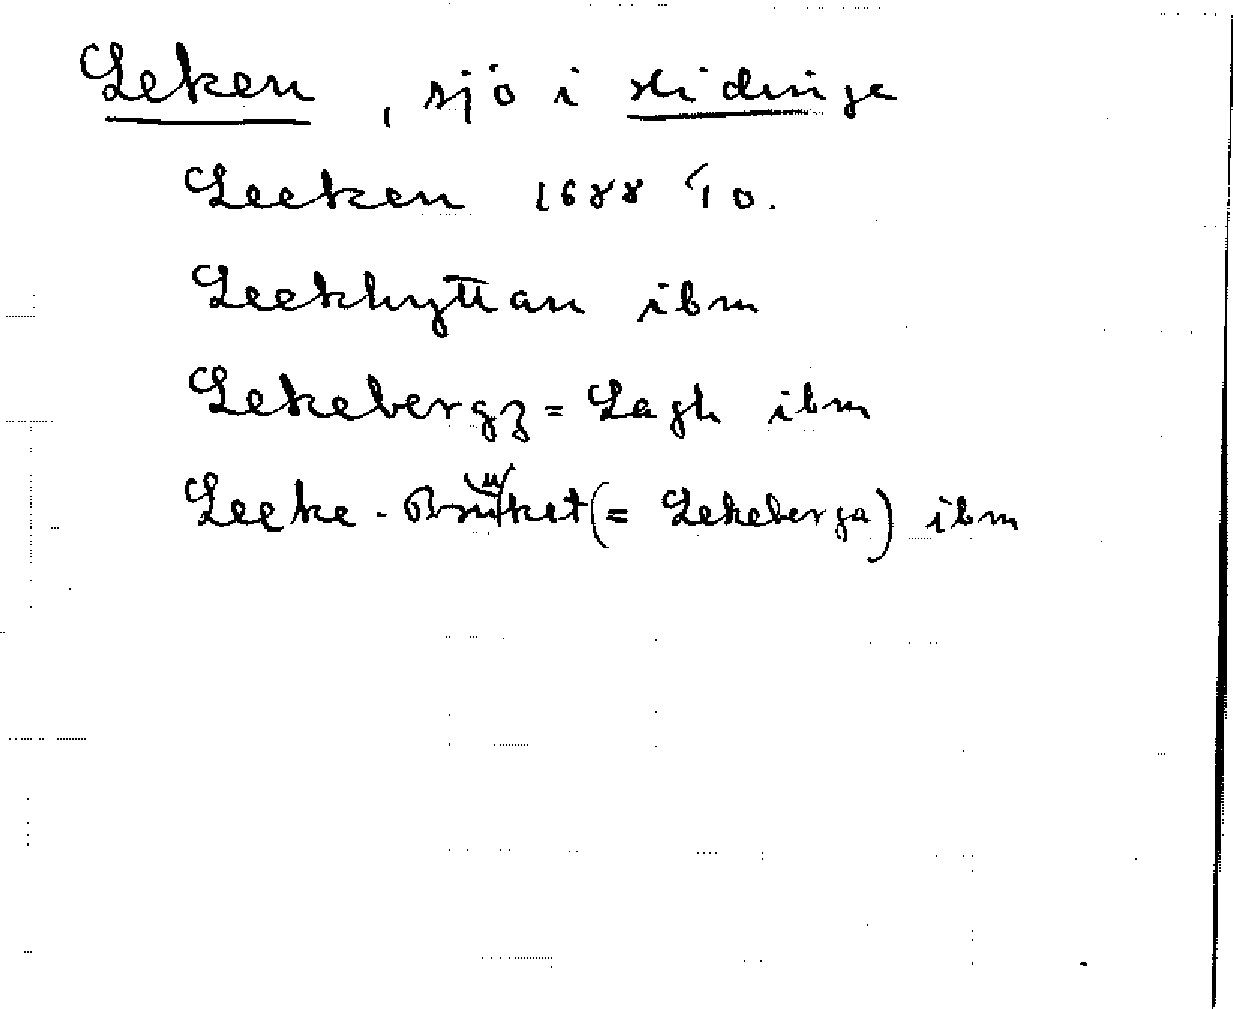 Leken, sjö i Hidinge
Leeken 1688 To.
Leekhyttan ibm
Lekebergz = Lagh ibm
Leeke-Bruket (= Lekeberga) ibm